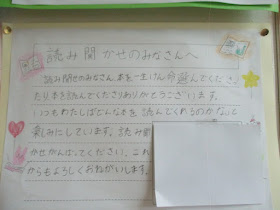 読み聞かせのみなさんへ
読み聞せのみなさん、本を一生けん命選んでくださ
り、本を読んでくださりありがとうございます。
いつもわたしはどんな本を読んでくれるのかなと
楽しみにしています。読み聞
かせがんばってください。これ
からもよろしくおねがいします。